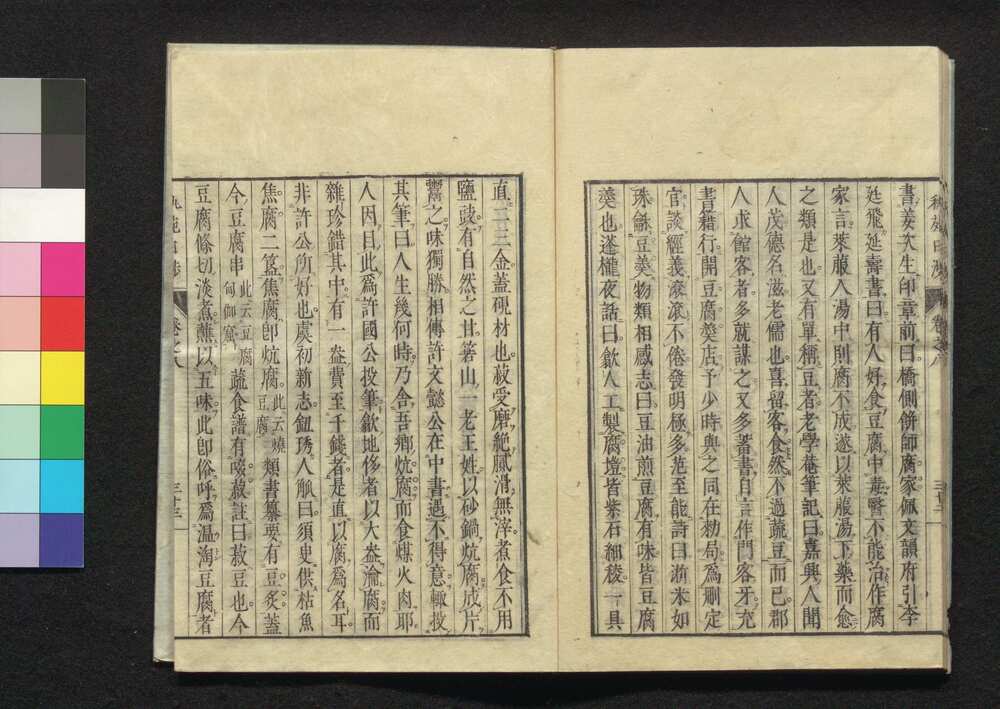 書姜次生印章前曰橋側餅師腐家佩文韻府引李
廷飛延壽書曰有人好食豆腐中毒醫不能治作腐
家言萊菔入湯中則腐不成遂以萊菔湯下藥而愈
之類是也又有單稱豆者老學菴筆記曰嘉興人聞
人茂德名滋老儒也喜留客食然不過蔬豆而已郡
人求館客者多就謀之又多蓄書自言作門客牙充
書籍行開豆腐羮店予少時與之同在勑局爲刪定
官談經義滾滾不倦發明極多范至能詩曰淅米如
珠飯豆羮物類相感志曰豆油煎豆腐有味皆豆腐
羮也蓬櫳夜話曰歙人工製腐磑皆紫石細稜一具
直二三金蓋硯材也菽受磨絶膩滑無滓煮食不用
鹽豉有自然之甘箬山一老王姓以砂鍋炕腐成片
鬻之味獨勝相傳許文懿公在中書遇不得意輙投
其筆曰人生幾何時乃舍吾鄉炕腐而食煤火肉耶
人因目此爲許國公投筆歙地侈者以大盎淪腐而
雜珍錯其中有一盎費至千錢者是直以腐爲名耳
非許公所好也虞初新志鈕琇人觚曰須臾供枯魚
焦腐二簋焦腐卽炕腐此云燒豆腐類書纂要有豆炙蓋
今豆腐串此云豆腐蔬食譜有啜菽註曰菽豆也今
豆腐條切淡煮蘸以五味此卽俗呼爲温淘豆腐者